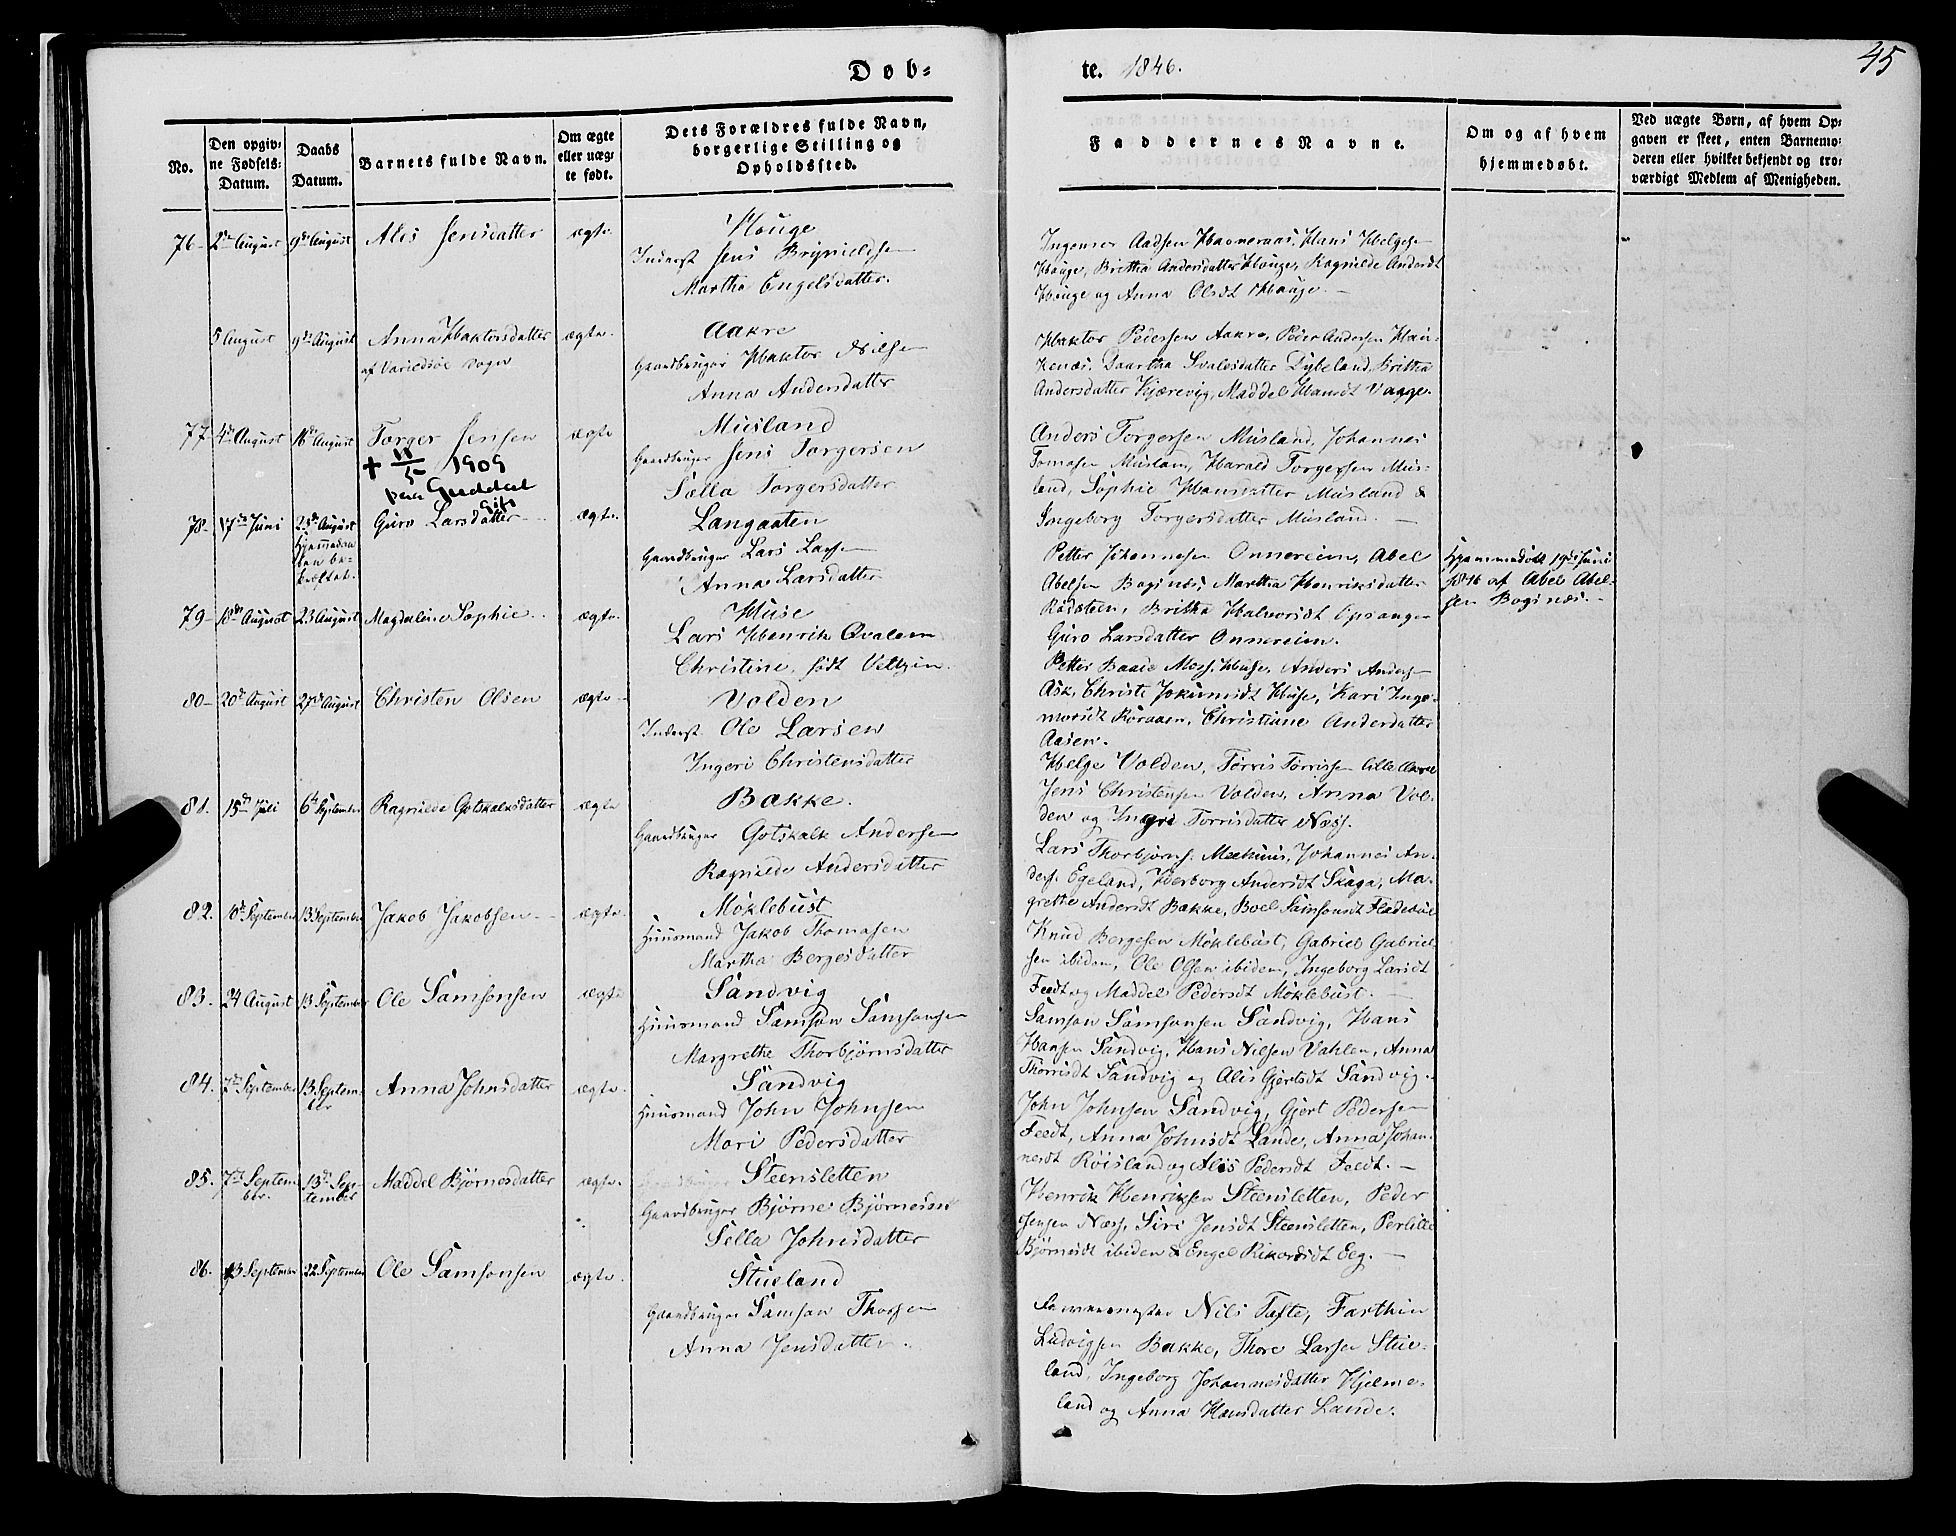 Døb=
te. 1846.
45
No.
Den opgiv=
ne Fødsels=
Datum.
Daabs
Datum.
Barnets fulde Navn.
Om ægte
eller uæg=
te født.
Dets Forældres fulde Navn,
borgerlige Stilling og
Opholdssted.
Faddernes Navne.
Om og af hvem
hjemmedøbt.
Ved uægte Børn, af hvem Op=
gaven er skeet, enten Barnemo=
deren eller hvilket bekjendt og tro=
værdigt Medlem af Menigheden.
76- 2den August 9de August Alis Jensdatter ægte
Houge
Inderst Jens Brynildsen
Martha Engelsdatter.
Aadsen Hans Helgesen
Houge, Britha Andersdatter Houge, Ragnilde Andersdt
Houge og Anna Olsdt Houge.
5 August 9de August Anna Haktorsdatter ægte.
af Varildsøe Sogn
Aakre
Gaardbruger Haktor Nilsen
Anna Andersdatter
Haktor Pedersen Aakre, Peder Andersen Hau-
Svalesdatter Dybeland, Britha
Andersdatter Kjærevig, Maddel Hansdt Vaage.
77 4de August 16de August Torger Jensen ægte
+ 11/5 1909
paa Guddal
Gift
Musland
Gaardbruger Jens Torgersen
Sælla Torgersdatter
Anders Torgersen Musland, Johannes
Tomasen Musland, Harald Torgersen Mus-
land, Sophie Hansdatter Musland &
Ingeborg Torgersdatter Musland.
78- 17de Juni 23de August Guro Larsdatter ægte.
Hjemmedaa-
ben be-
kræftet.
Langaaten
Gaardbruger Lars Larsen
Anna Larsdatter
Petter Johannesen Onnereim, Abel
Abelsen Boginæs, Martha Henriksdatter
Rødsteen, Britha Halvorsdt Opsanger
Guro Larsdatter Onnereim.
Hjemmedøbt 19de Juni
1846 af Abel Abel-
sen Boginæs.
79- 18de August 23 August Magdalene Sophie ægte.
Huse
Lars Henrik Qvalem
Christine, født Veltzin.
Petter Baade Moss. Huse, Anders Andersen
Ask, Christi Joksumsdt Huse, Kari Inge-
morsdt Roraaen, Christiane Andersdatter
Aasen.
80- 20de August 27de August Christen Olsen ægte
Volden
Inderst Ole Larsen
Ingeri Christensdatter
Helge Volden, Torris Torrissen
Jens Christensen Volden, Anna Vol-
den og Ingri Torrisdatter Næss.
81. 15de Juli 6te September Ragnilde Gotskalksdatter ægte
Bakke.
Gaardbruger Gotskalk Andersen
Ragnilde Andersdatter
Lars Thorbjørns. Mæhuus, Johannes An-
ders. Egeland, Herborg Andersdt Skaga, Ma-
grethe Andersdt Bakke, Boel Samsonsdt Fladebøe
82. 10de September 13 September Jakob Jakobsen ægte.
Møklebust
Huusmand Jakob Thomasen
Martha Bergesdatter
Knud Bergesen Møklebust, Gabriel Gabriel-
sen ibidem, Ole Olsen ibidem, Ingeborg Larsdt
Feedt og Maddel Pedersdt Møklebust.
83. 24 August 13 September Ole Samsonsen ægte
Sandvig
Huusmand Samson Samsonsen
Margrethe Thorbjørnsdatter
Samson Samsonsen Sandvig, Hans
Hansen Sandvig, Hans Nilsen Vahlen, Anna
Thorrisdt Sandvig og Alis Gjertsdt Sandvig.
84. 7de September 13 Septem- Anna Johnsdatter ægte.
ber
Sandvig
Huusmand John Johnsen
Mari Pedersdatter
John Johnsen Sandvig, Gjert Pedersen
Feedt, Anna Johnsdt Lande, Anna Johan-
nesdt Røisland og Alis Pedersdt Feedt.
85. 7de Septem- 13de Sep- Maddel Bjørnesdatter ægte.
ber. tember
Steensletten
Gaardbruger Bjørne Bjørnesen
Sella Johnsdatter
Henrik Henriksen Steensletten, Peder
Jensen Næss, Siri Jensdt Steensletten, Perlille
Bjørnsdt ibidem & Engel Rikordsdt Eeg.
86. 13 September 22 September Ole Samsonsen ægte.
Stueland
Gaardbruger Samson Thorsen
Anna Jensdatter.
Nils Tofte, Farthin
Ludvigsen Bakke, Thore Larsen Stue-
land, Ingeborg Johannesdatter Hjelme-
land og Anna Hansdatter Lande.